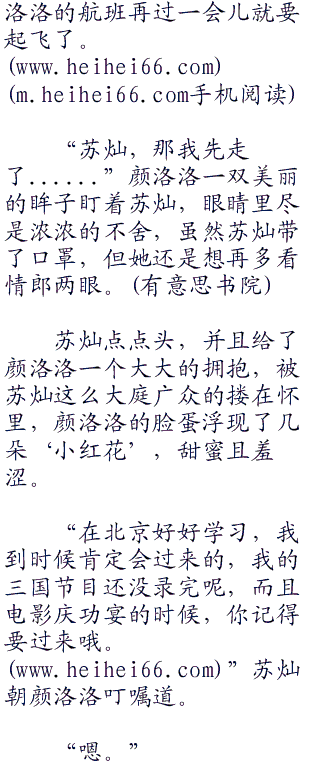 洛洛的航班再过一会儿就要
起飞了。
(www.heihei66.com)
(m.heihei66.com手机阅读)
“苏灿，那我先走
了......”颜洛洛一双美丽
的眸子盯着苏灿，眼睛里尽
是浓浓的不舍，虽然苏灿带
了口罩，但她还是想再多看
情郎两眼。(有意思书院)
苏灿点点头，并且给了
颜洛洛一个大大的拥抱，被
苏灿这么大庭广众的搂在怀
里，颜洛洛的脸蛋浮现了几
朵‘小红花’，甜蜜且羞
涩。
“在北京好好学习，我
到时候肯定会过来的，我的
三国节目还没录完呢，而且
电影庆功宴的时候，你记得
要过来哦。
(www.heihei66.com)”苏灿
朝颜洛洛叮嘱道。
“嗯。”